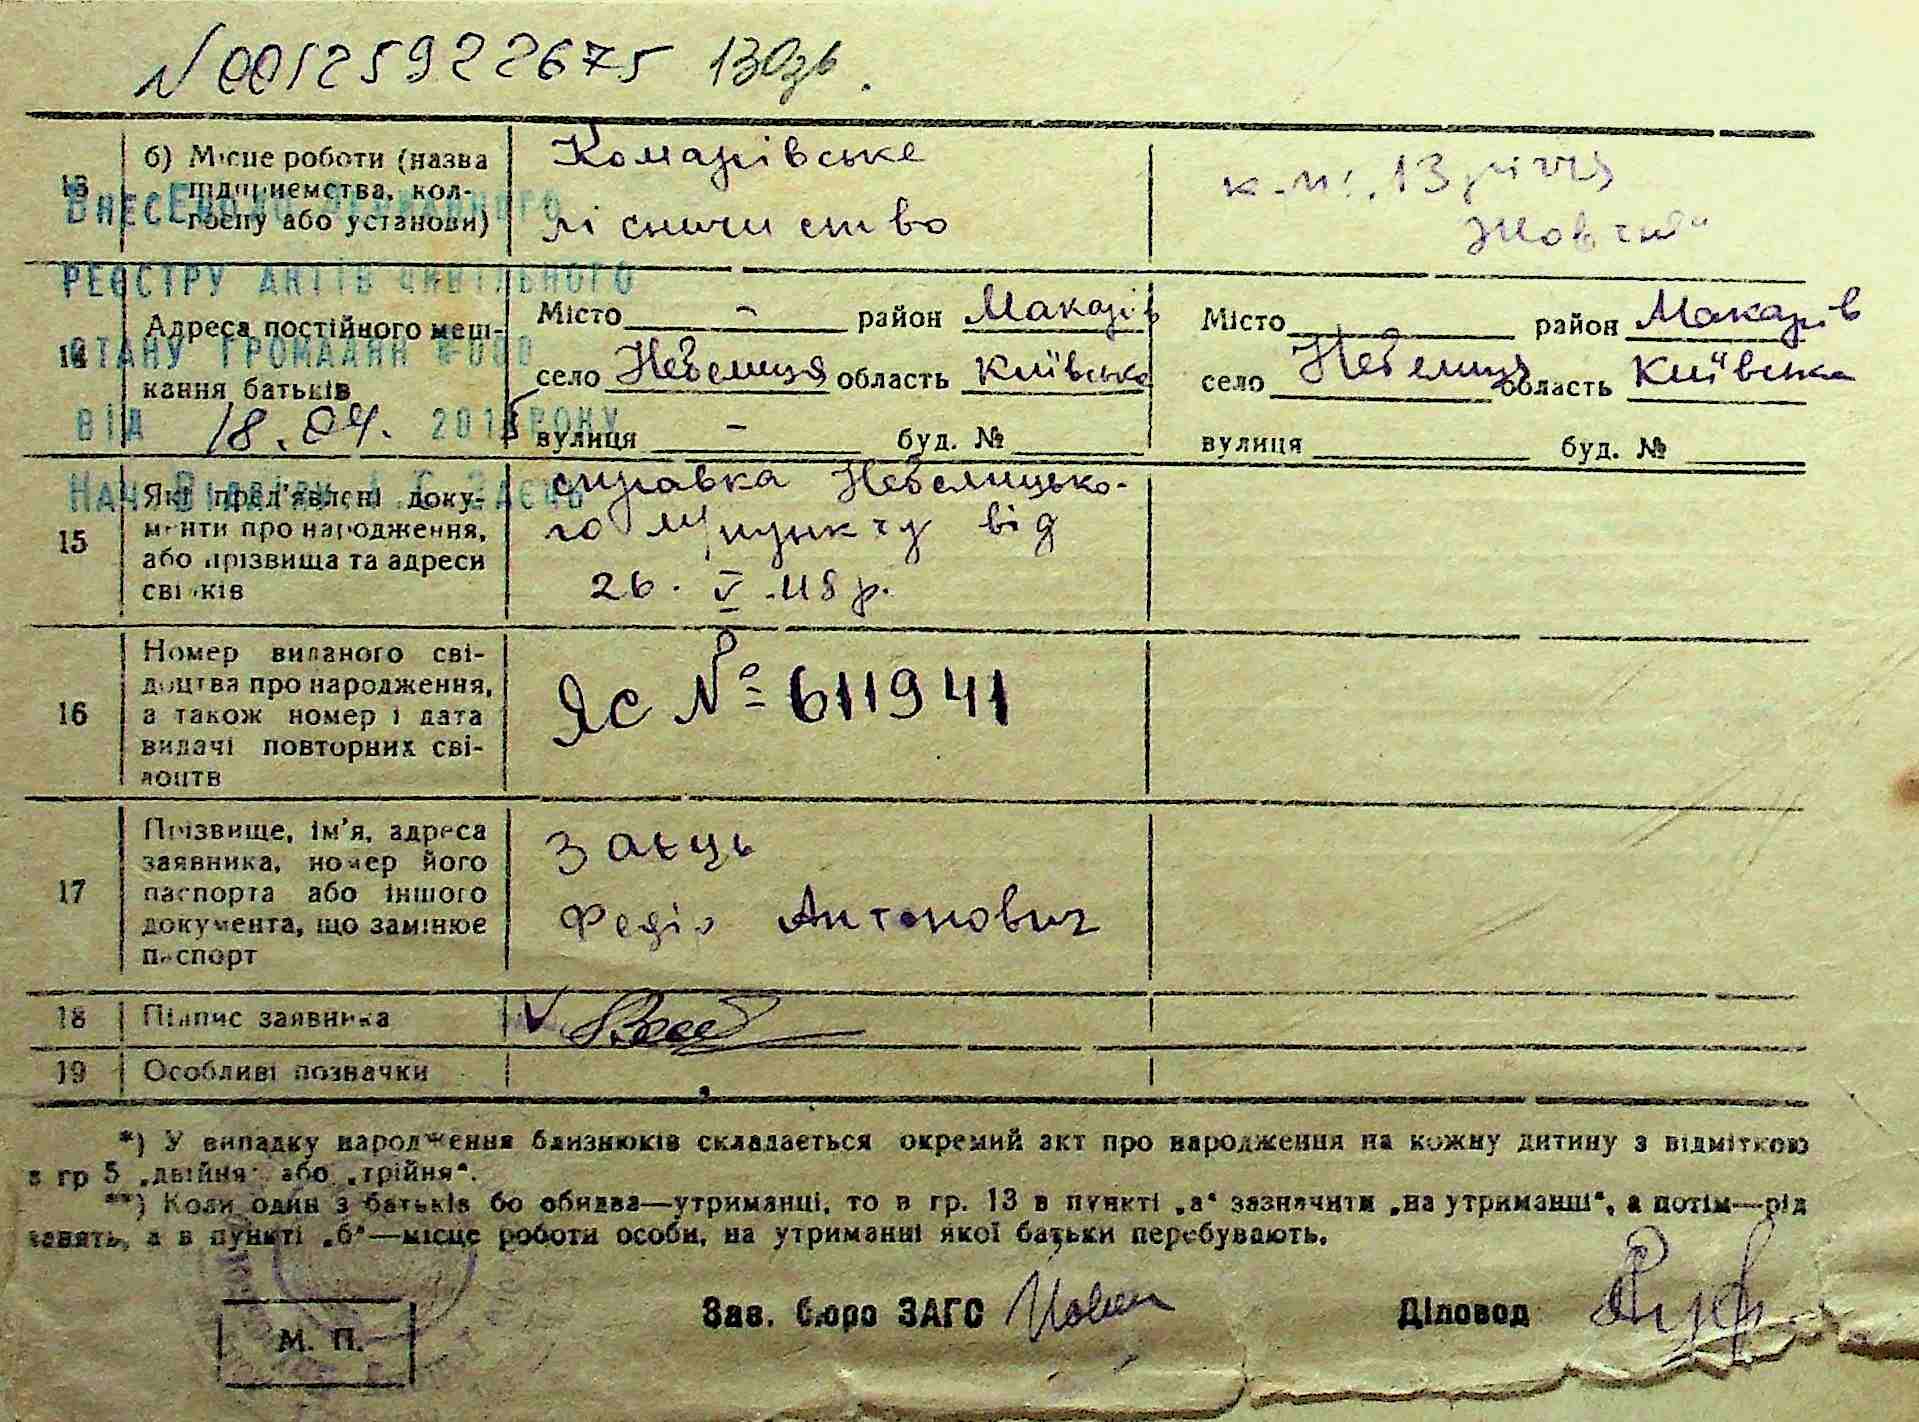 N 00125922675 13
13 б) Місце роботи (назва підприємства, колгоспу або установи)
Комарівське
лісничиство
13 річчя
Жовтня"
ВНЕСЕНО ДО ДЕРЖАВНОГО
РЕЄСТРУ АКТІВ ЦИВІЛЬНОГО
СТАНУ ГРОМАДЯН
ВІД 18.04. 201 РОКУ
НАЧ. ВІДДІЛУ І.С.ЗАЄЦЬ
14 Адреса постійного мешкання батьків
Місто – район Макарів
село Небелиця область Київська
вулиця – буд. №
Місто район Макарів
село Небелиця область Київська
вулиця буд. №
15 Які пред'явлені документи про народження, або прізвища та адреси свідків
справка Небелицько-
го пункту від
26. V 48 р.
16 Номер виданого свідоцтва про народження, а також номер і дата видачі повторних свідоцтв
ЯС № 611941
17 Прізвище, ім'я, адреса заявника, номер його паспорта або іншого документа, що замінює паспорт
Заєць
Федір Антонович
18 Підпис заявника
19 Особливі позначки
*) У випадку народження близнюків складається окремий акт про народження на кожну дитину з відміткою
в гр 5 „двійня" або „трійня".
**) Коли один з батьків бо обидва—утриманці, то в гр. 13 в пункті „а" зазначити „на утриманні", а потім—рід
занять, а в пункті „б"—місце роботи особи, на утриманні якої батьки перебувають.
Зав. бюро ЗАГС
Діловод
М. П.